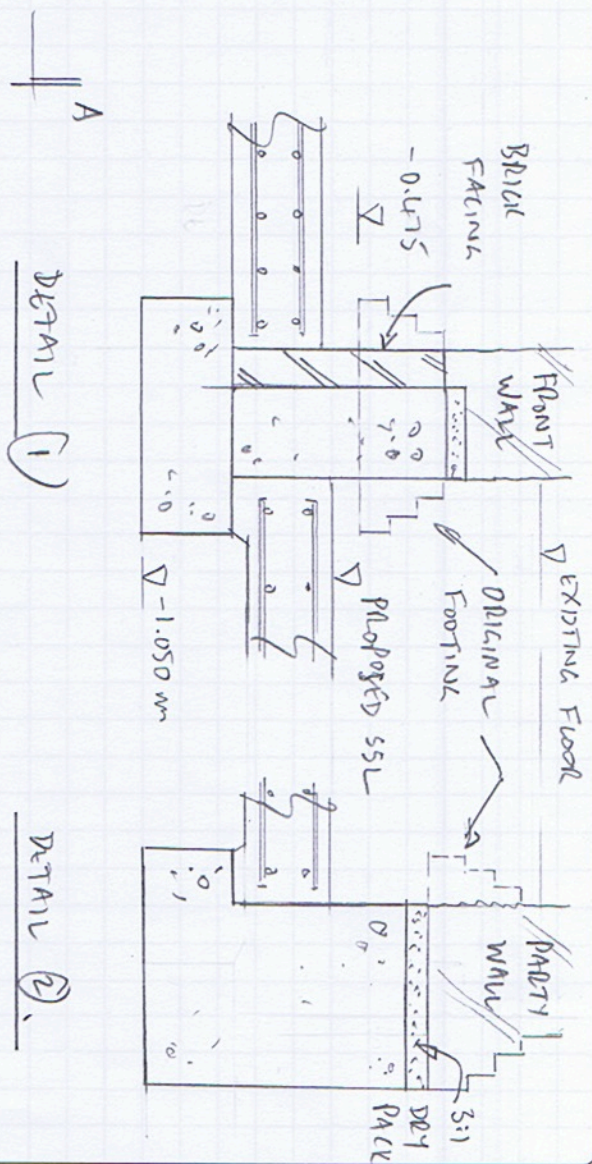 BRICK
FACING
-0.475
FRONT
WALL
EXISTING FLOOR
ORIGINAL
FOOTING
PROPOSED SSL
-1.050 m
A
DETAIL 1
PARTY
WALL
3:1
DRY
PACK
DETAIL 2.